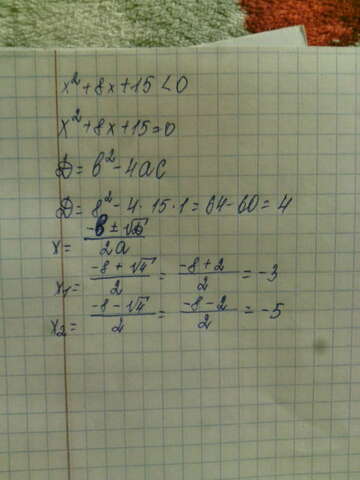 x²+8x+15<0
x²+8x+15=0
D=b²-4ac
D=8²-4·15·1=64-60=4
x=(-b±√D)/2a
x₁=(-8+√4)/2=(-8+2)/2=-3
x₂=(-8-√4)/2=(-8-2)/2=-5